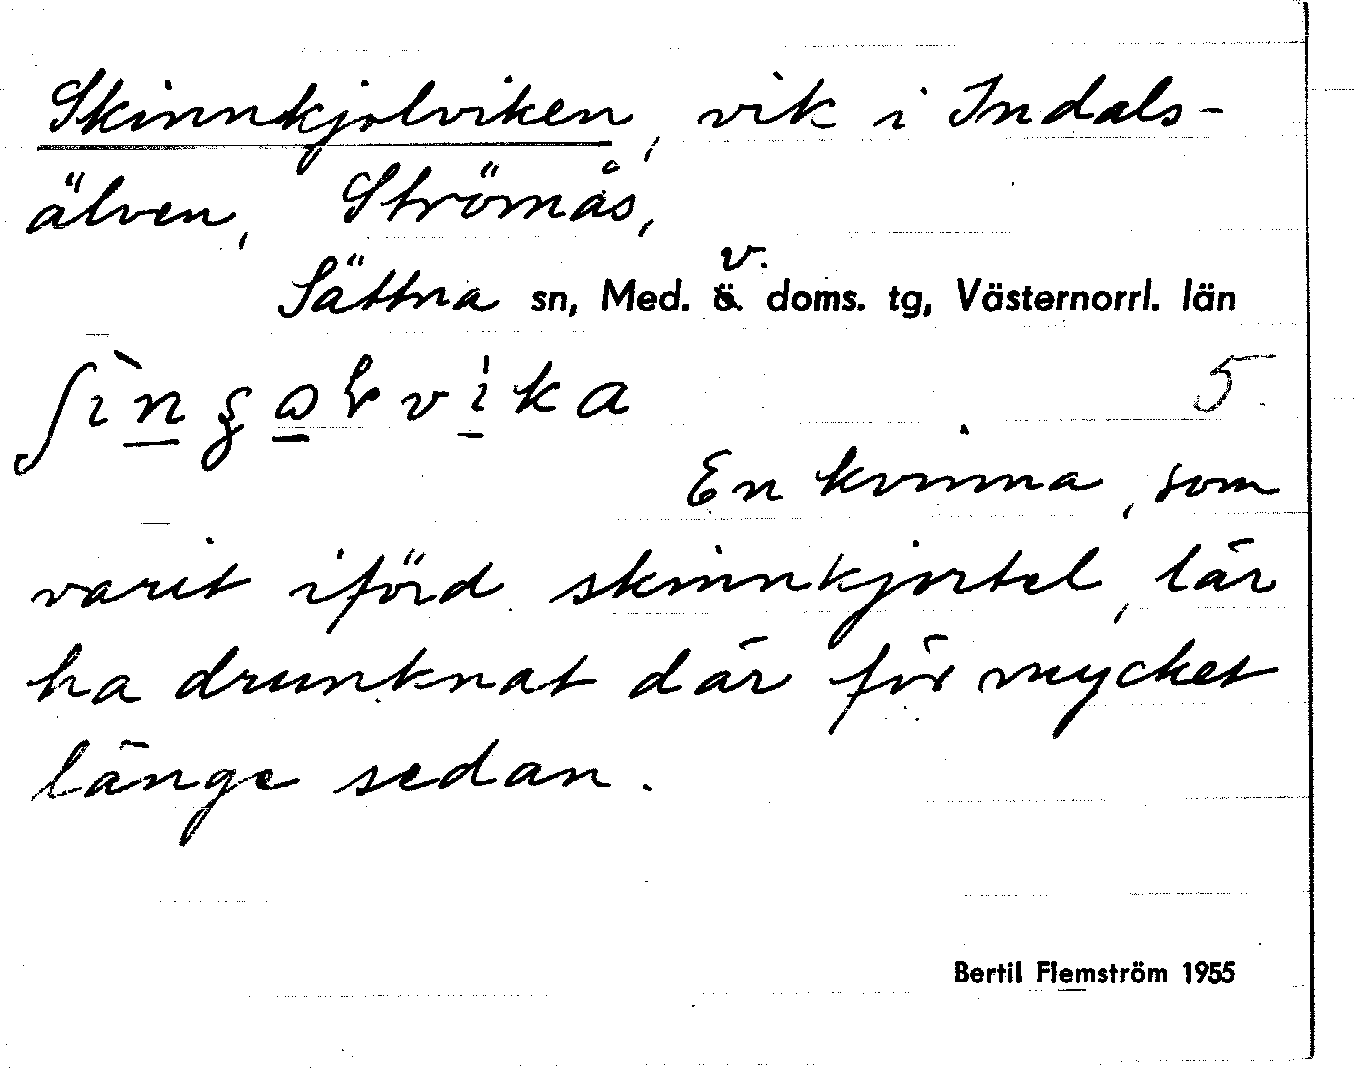 Skinnkjolviken, vik i Indals-
älven, Strömås,
Sättna sn, Med. v. doms. tg, Västernorrl. län
5.
En kvinna, som
varit iförd skinnkjortel, lär
ha drunknat där för mycket
länge sedan.
Bertil Flemström 1955